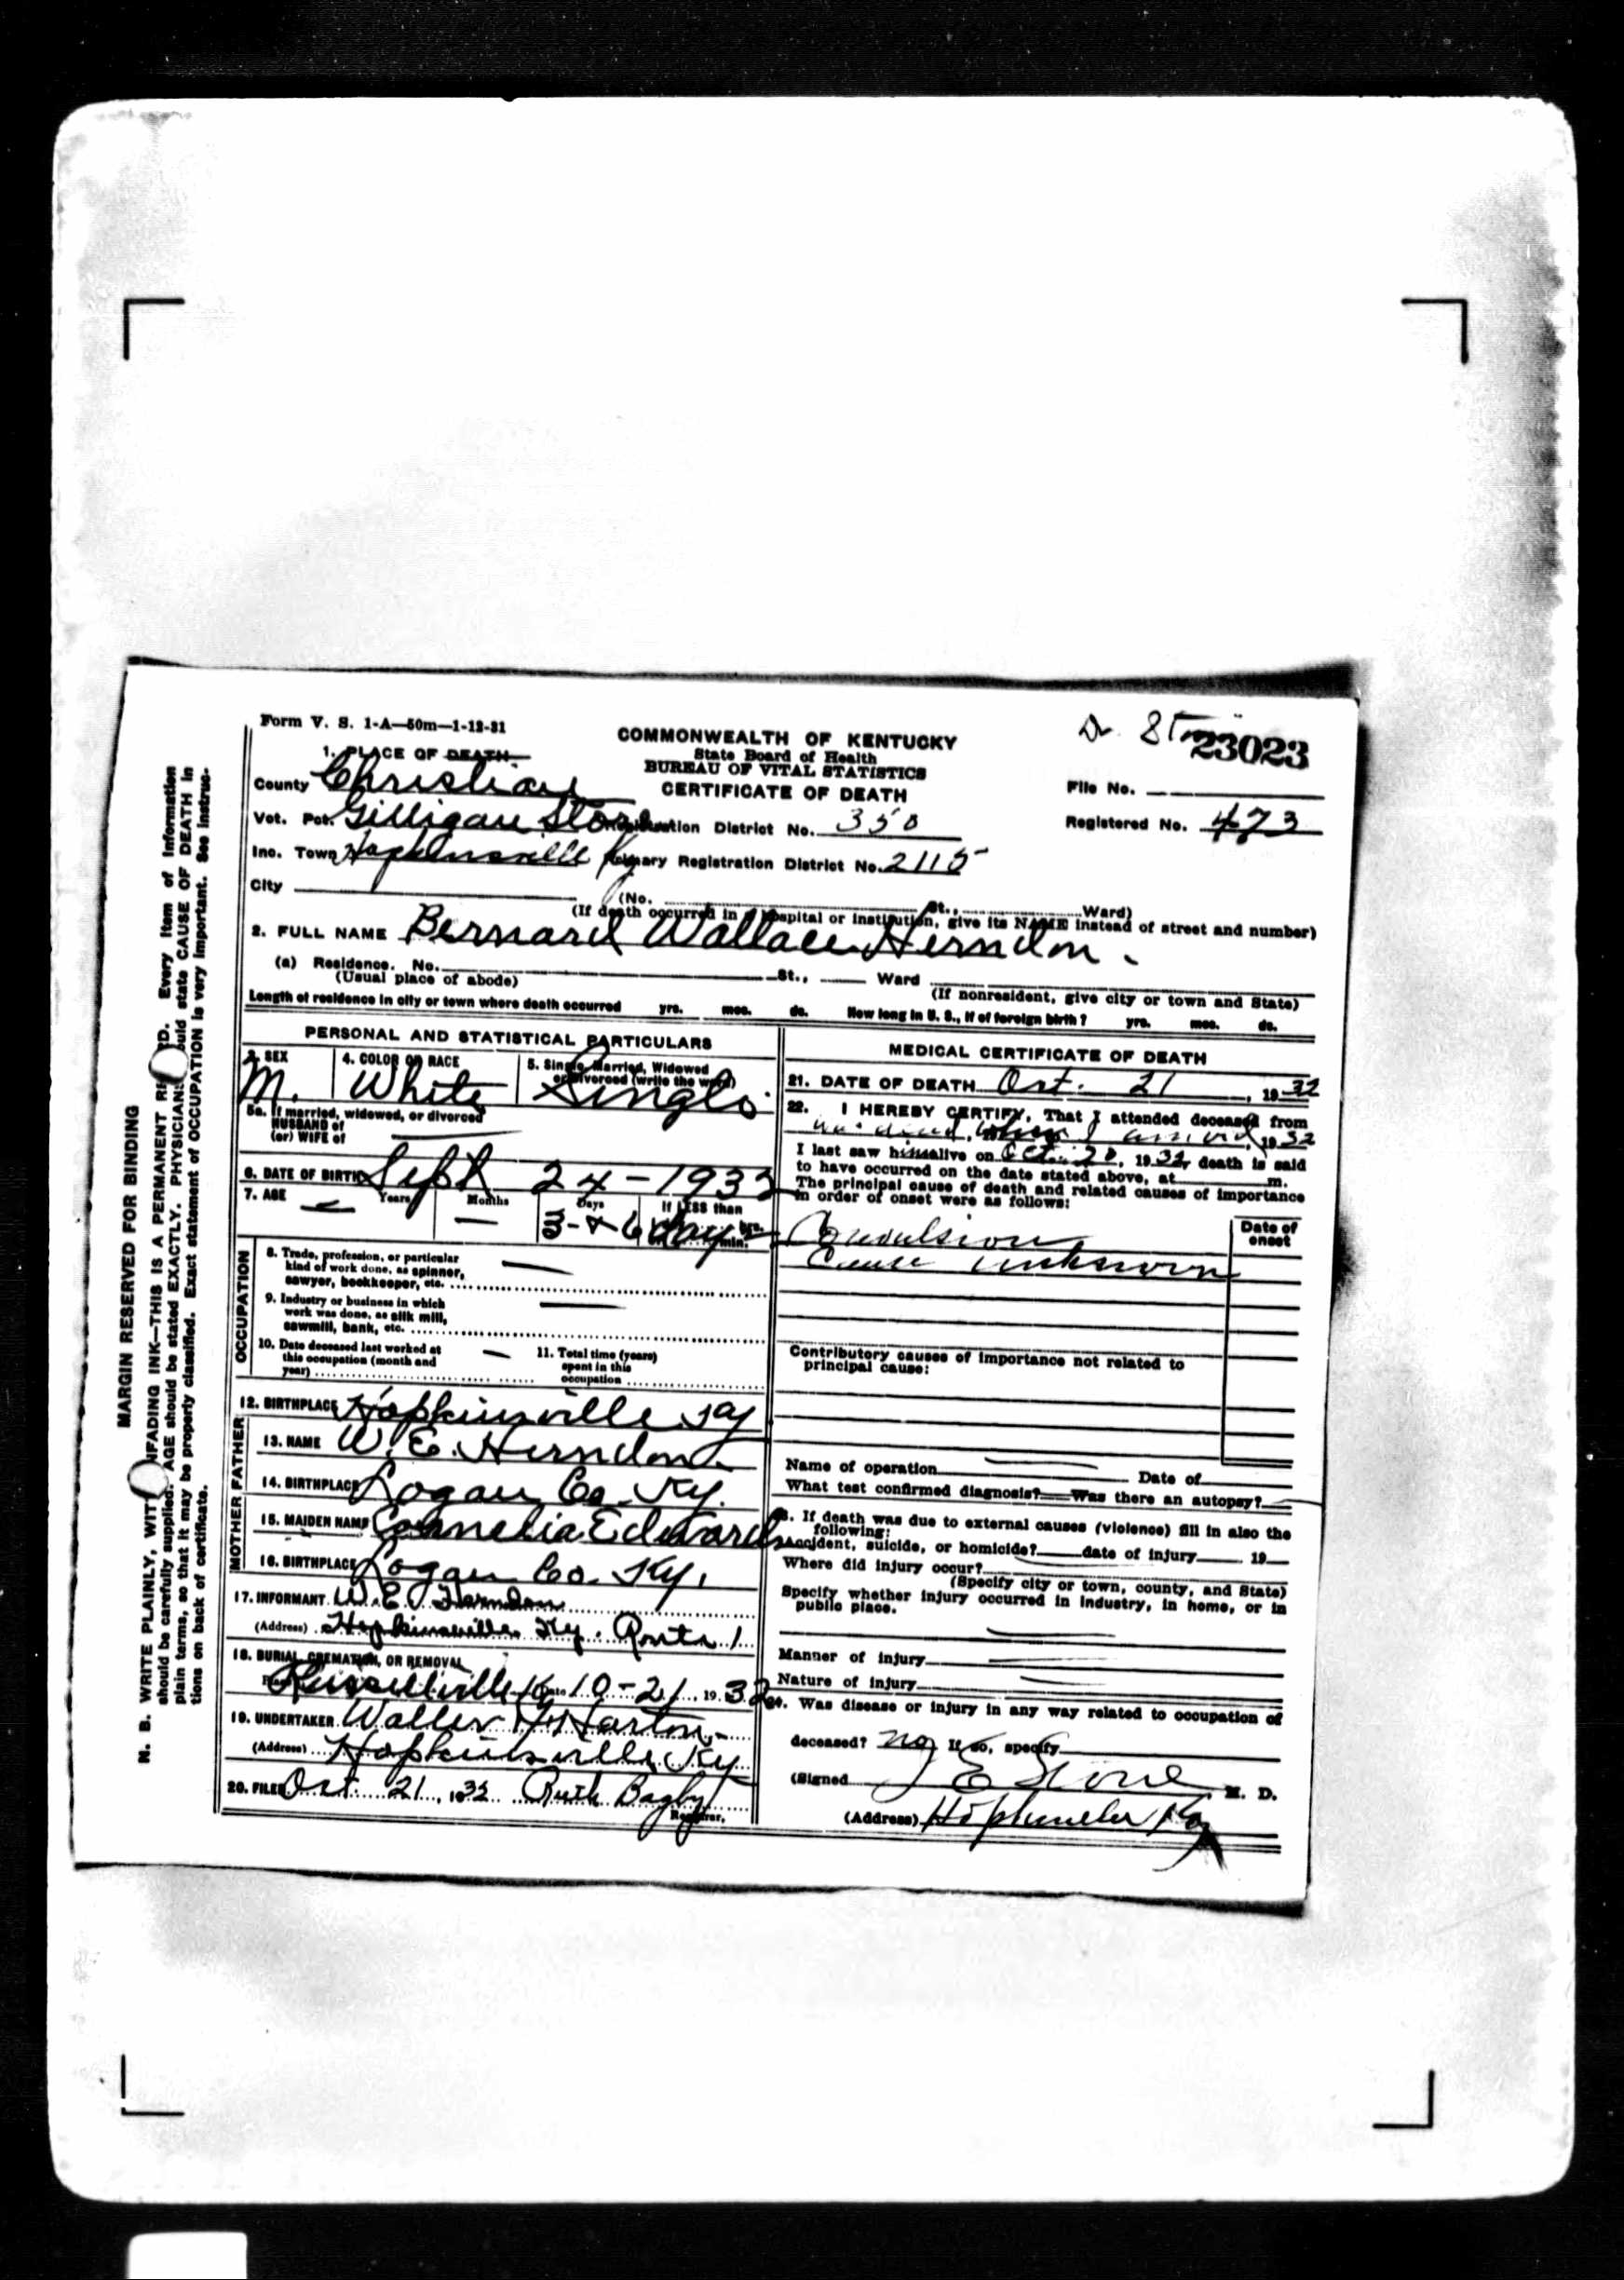 Form V. S. 1-A—50m—1-12-31
COMMONWEALTH OF KENTUCKY
State Board of Health
BUREAU OF VITAL STATISTICS
CERTIFICATE OF DEATH
Dr.
23023
File No.
Registered No. 473
1. PLACE OF DEATH
County Christian
Vot. Pct. Gilligan Store Registration District No. 350
Inc. Town Hopkinsville Ky Primary Registration District No. 2115
City (No. St., Ward)
(If death occurred in a hospital or institution, give its NAME instead of street and number)
2. FULL NAME Bernard Wallace Herndon.
(a) Residence. No. St., Ward
(Usual place of abode) (If nonresident, give city or town and State)
Length of residence in city or town where death occurred yrs. mos. ds. How long in U. S., if of foreign birth? yrs. mos. ds.
PERSONAL AND STATISTICAL PARTICULARS
3. SEX 4. COLOR OR RACE 5. Single, Married, Widowed
or Divorced (write the word)
M. White Single
5a. If married, widowed, or divorced
HUSBAND of
(or) WIFE of
6. DATE OF BIRTH Sept 24-1932
7. AGE Years Months Days If LESS than
day hrs.
min.
8. Trade, profession, or particular
kind of work done, as spinner,
sawyer, bookkeeper, etc.
9. Industry or business in which
work was done, as silk mill,
sawmill, bank, etc.
10. Date deceased last worked at
this occupation (month and
year)
11. Total time (years)
spent in this
occupation
OCCUPATION
12. BIRTHPLACE Hopkinsville Ky
FATHER
13. NAME W. E. Herndon
14. BIRTHPLACE Logan Co. Ky.
MOTHER
15. MAIDEN NAME Cornelia Edwards
16. BIRTHPLACE Logan Co. Ky.
17. INFORMANT W. E. Herndon
(Address) Hopkinsville Ky. Route 1
18. BURIAL, CREMATION, OR REMOVAL
Place Russellville Ky Date 10-21 1932
19. UNDERTAKER Waller H Harton
(Address) Hopkinsville Ky
20. FILED Oct 21, 1932 Ruth Bagby
Registrar.
MEDICAL CERTIFICATE OF DEATH
21. DATE OF DEATH Oct. 21, 1932
22. I HEREBY CERTIFY, That I attended deceased from
was dead when I arrived, 1932
I last saw him alive on Oct. 20, 1932, death is said
to have occurred on the date stated above, at m.
The principal cause of death and related causes of importance
in order of onset were as follows:
Date of
onset
Convulsion
Cause unknown
Contributory causes of importance not related to
principal cause:
Name of operation Date of
What test confirmed diagnosis? Was there an autopsy?
23. If death was due to external causes (violence) fill in also the
following:
Accident, suicide, or homicide? date of injury 19
Where did injury occur?
(Specify city or town, county, and State)
Specify whether injury occurred in industry, in home, or in
public place.
Manner of injury
Nature of injury
24. Was disease or injury in any way related to occupation of
deceased? no If so, specify
(Signed J E Stone M. D.
(Address) Hopkinsville Ky
MARGIN RESERVED FOR BINDING
N. B. WRITE PLAINLY, WITH UNFADING INK—THIS IS A PERMANENT RECORD. Every item of information
should be carefully supplied. AGE should be stated EXACTLY. PHYSICIANS should state CAUSE OF DEATH in
plain terms, so that it may be properly classified. Exact statement of OCCUPATION is very important. See instruc-
tions on back of certificate.